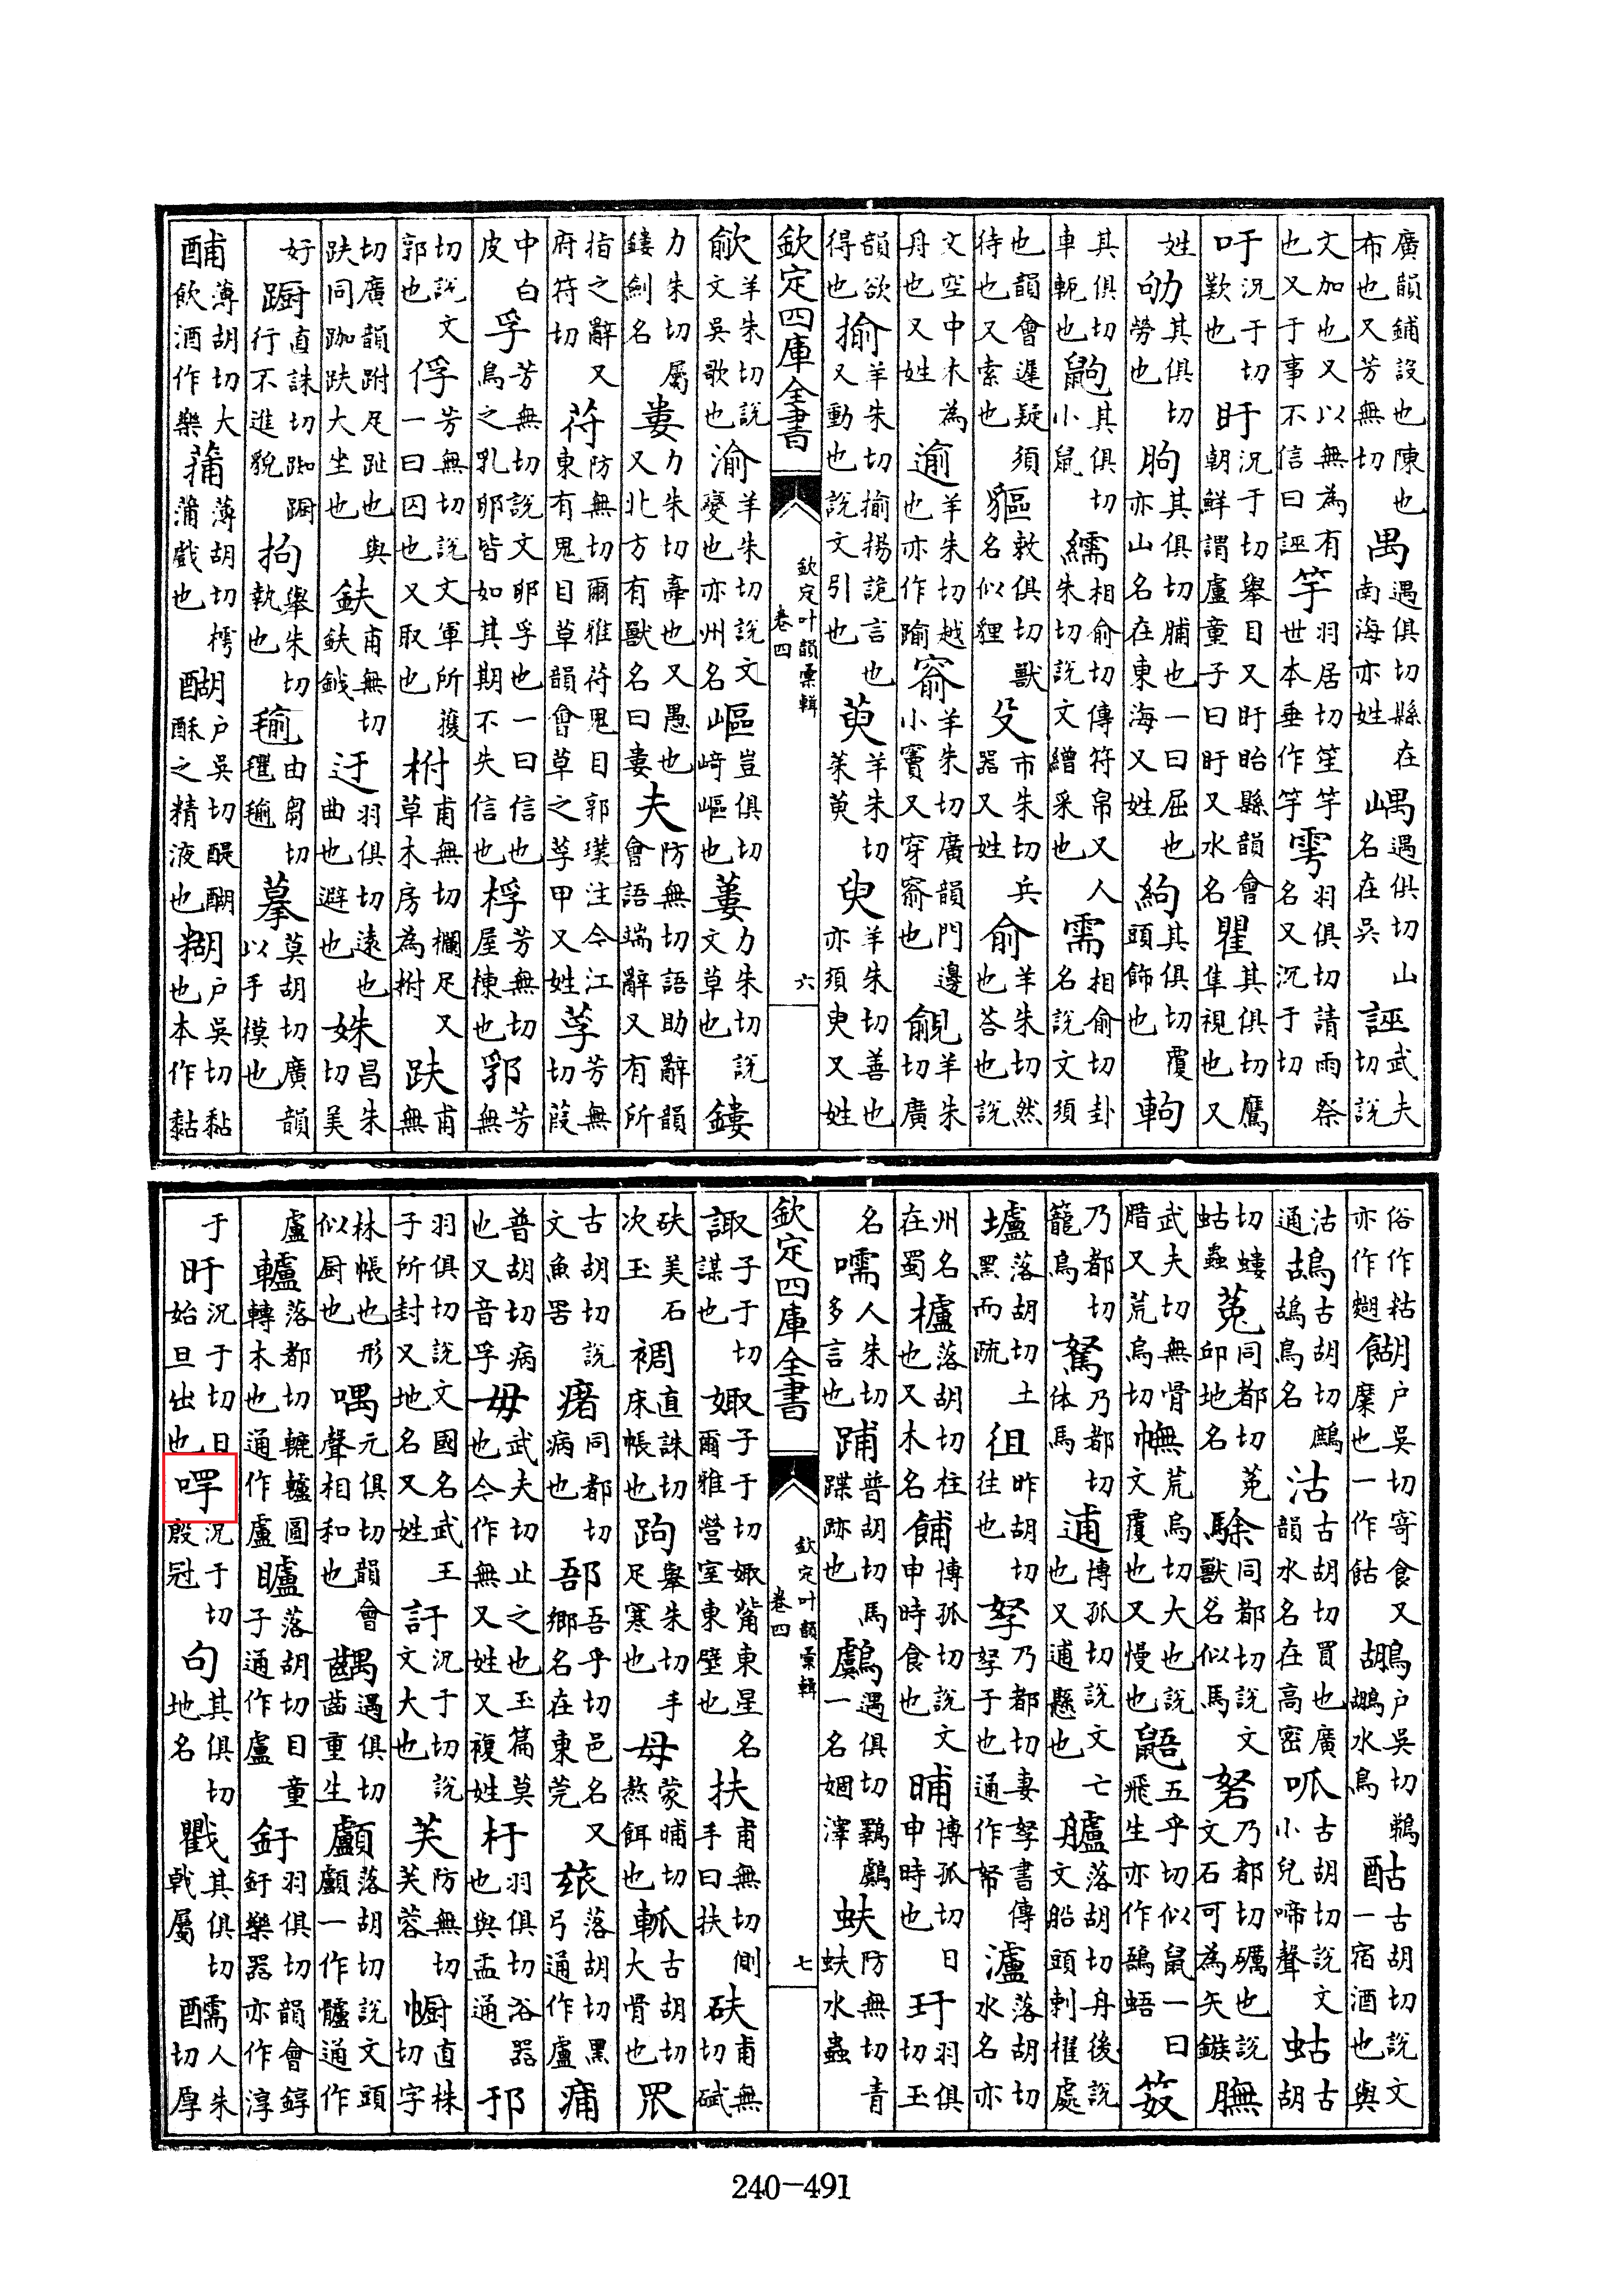 廣韻鋪設也陳也布也又芳無切禺遇俱切縣在南海亦姓嵎遇俱切山名在吳誣武夫切說
文加也又以無為有也又于事不信曰誣竽羽居切笙竽世本垂作竽雩羽俱切請雨祭名又沉于切
吁況于切歎也盱況于切舉目又盱眙縣韻會朝鮮謂盧童子曰盱又水名瞿其俱切鷹隼視也又
姓劬其俱切勞也朐其俱切脯也一曰屈也亦山名在東海又姓絇其俱切覆頭飾也軥
其俱切車軛也鼩其俱切小鼠繻相俞切傳符帛又人朱切說文繒采也需相俞切卦名說文須
也韻會遲疑須待也又索也貙敕俱切獸名似貍殳市朱切兵器又姓俞羊朱切然也答也說
文空中木為舟也又姓逾羊朱切越也亦作踰窬羊朱切廣韻門邊小竇又穿窬也覦羊朱切廣
韻欲得也揄羊朱切揄揚詭言也又動也說文引也萸羊朱切茱萸臾羊朱切善也亦須臾又姓
欽定四庫全書 欽定叶韻彙輯 卷四 六
歈羊朱切說文吳歌也渝羊朱切說文變也亦州名嶇豈俱切崎嶇也蔞力朱切說文草也鏤
力朱切屬鏤劍名婁力朱切牽也又愚也又北方有獸名曰婁夫防無切語助辭韻會語端辭又有所
指之辭又府符切苻防無切爾雅苻鬼目郭璞注今江東有鬼目草韻會草之莩甲又姓莩芳無切葭
中白皮孚芳無切說文卵孚也一曰信也鳥之乳卵皆如其期不失信也桴芳無切屋棟也郛芳無
切說文郭也俘芳無切說文軍所獲一曰囚也又取也柎甫無切欄足又草木房為柎趺甫無
切廣韻跗足趾也與趺同跏趺大坐也鈇甫無切鈇鉞迂羽俱切遠也曲也避也姝昌朱切美
好蹰直誅切踟蹰行不進貌拘舉朱切執也毹由芻切氍毹摹莫胡切廣韻以手摸也
酺薄胡切大飲酒作樂蒱薄胡切樗蒲戲也醐戶吳切醍醐酥之精液也糊戶吳切黏也本作黏
俗作粘亦作䊀餬戶吳切寄食又糜也一作䬶鶘戶吳切鵜鶘水鳥酤古胡切說文一宿酒也與
沽通鴣古胡切鷓鴣鳥名沽古胡切買也廣韻水名在高密呱古胡切說文小兒啼聲蛄古胡
切螻蛄蟲菟同都切菟邱地名駼同都切說文獸名似馬砮乃都切礪也說文石可為矢鏃膴
武夫切無骨腊又荒烏切幠荒烏切大也說文覆也又慢也鼯五乎切似鼠一曰飛生亦作鵐蛞笯
乃都切籠鳥駑乃都切体馬逋博孤切說文亡也又逋懸也艫落胡切舟後說文船頭刺櫂處
壚落胡切土黑而疏徂昨胡切往也孥乃都切妻孥書傳孥子也通作帑瀘落胡切水名亦
州名在蜀櫨落胡切柱也又木名餔博孤切說文申時食也晡博孤切日申時也玗羽俱切玉
名嚅人朱切多言也踊普胡切馬蹀跡也鸆遇俱切鸅鸆一名婟澤蚨防無切青蚨水蟲
欽定四庫全書 欽定叶韻彙輯 卷四 七
諏子于切謀也娵子于切娵觜東星名爾雅營室東壁也扶甫無切側手曰扶砆甫無切碔
砆美石次玉裯直誅切床帳也跔舉朱切手足寒也母蒙晡切熬餌也軱古胡切大骨也罛
古胡切說文魚罟瘏同都切病也郚吾乎切邑名又鄉名在東莞玈落胡切黑弓通作盧痡
普胡切病也又音孚毋武夫切止之也玉篇莫也今作無又姓又複姓杅羽俱切浴器也與盂通邘
羽俱切說文國名武王子所封又地名又姓訏況于切說文大也芙防無切芙蓉幮直株切字
林帳也形似厨也喁元俱切韻會聲相和也齵遇俱切齒重生顱落胡切說文頭顱一作髗通作
盧轤落都切轆轤圓轉木也通作盧矑落胡切目童子通作盧釪羽俱切韻會錞釪樂器亦作淳
于旴況于切日始旦出也冔況于切殷冠句其俱切地名戵其俱切戟屬醹人朱切厚